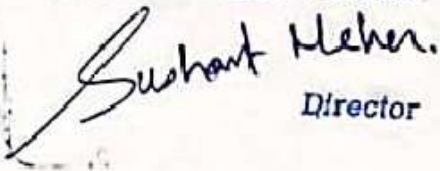 Sushant Meher.
Director